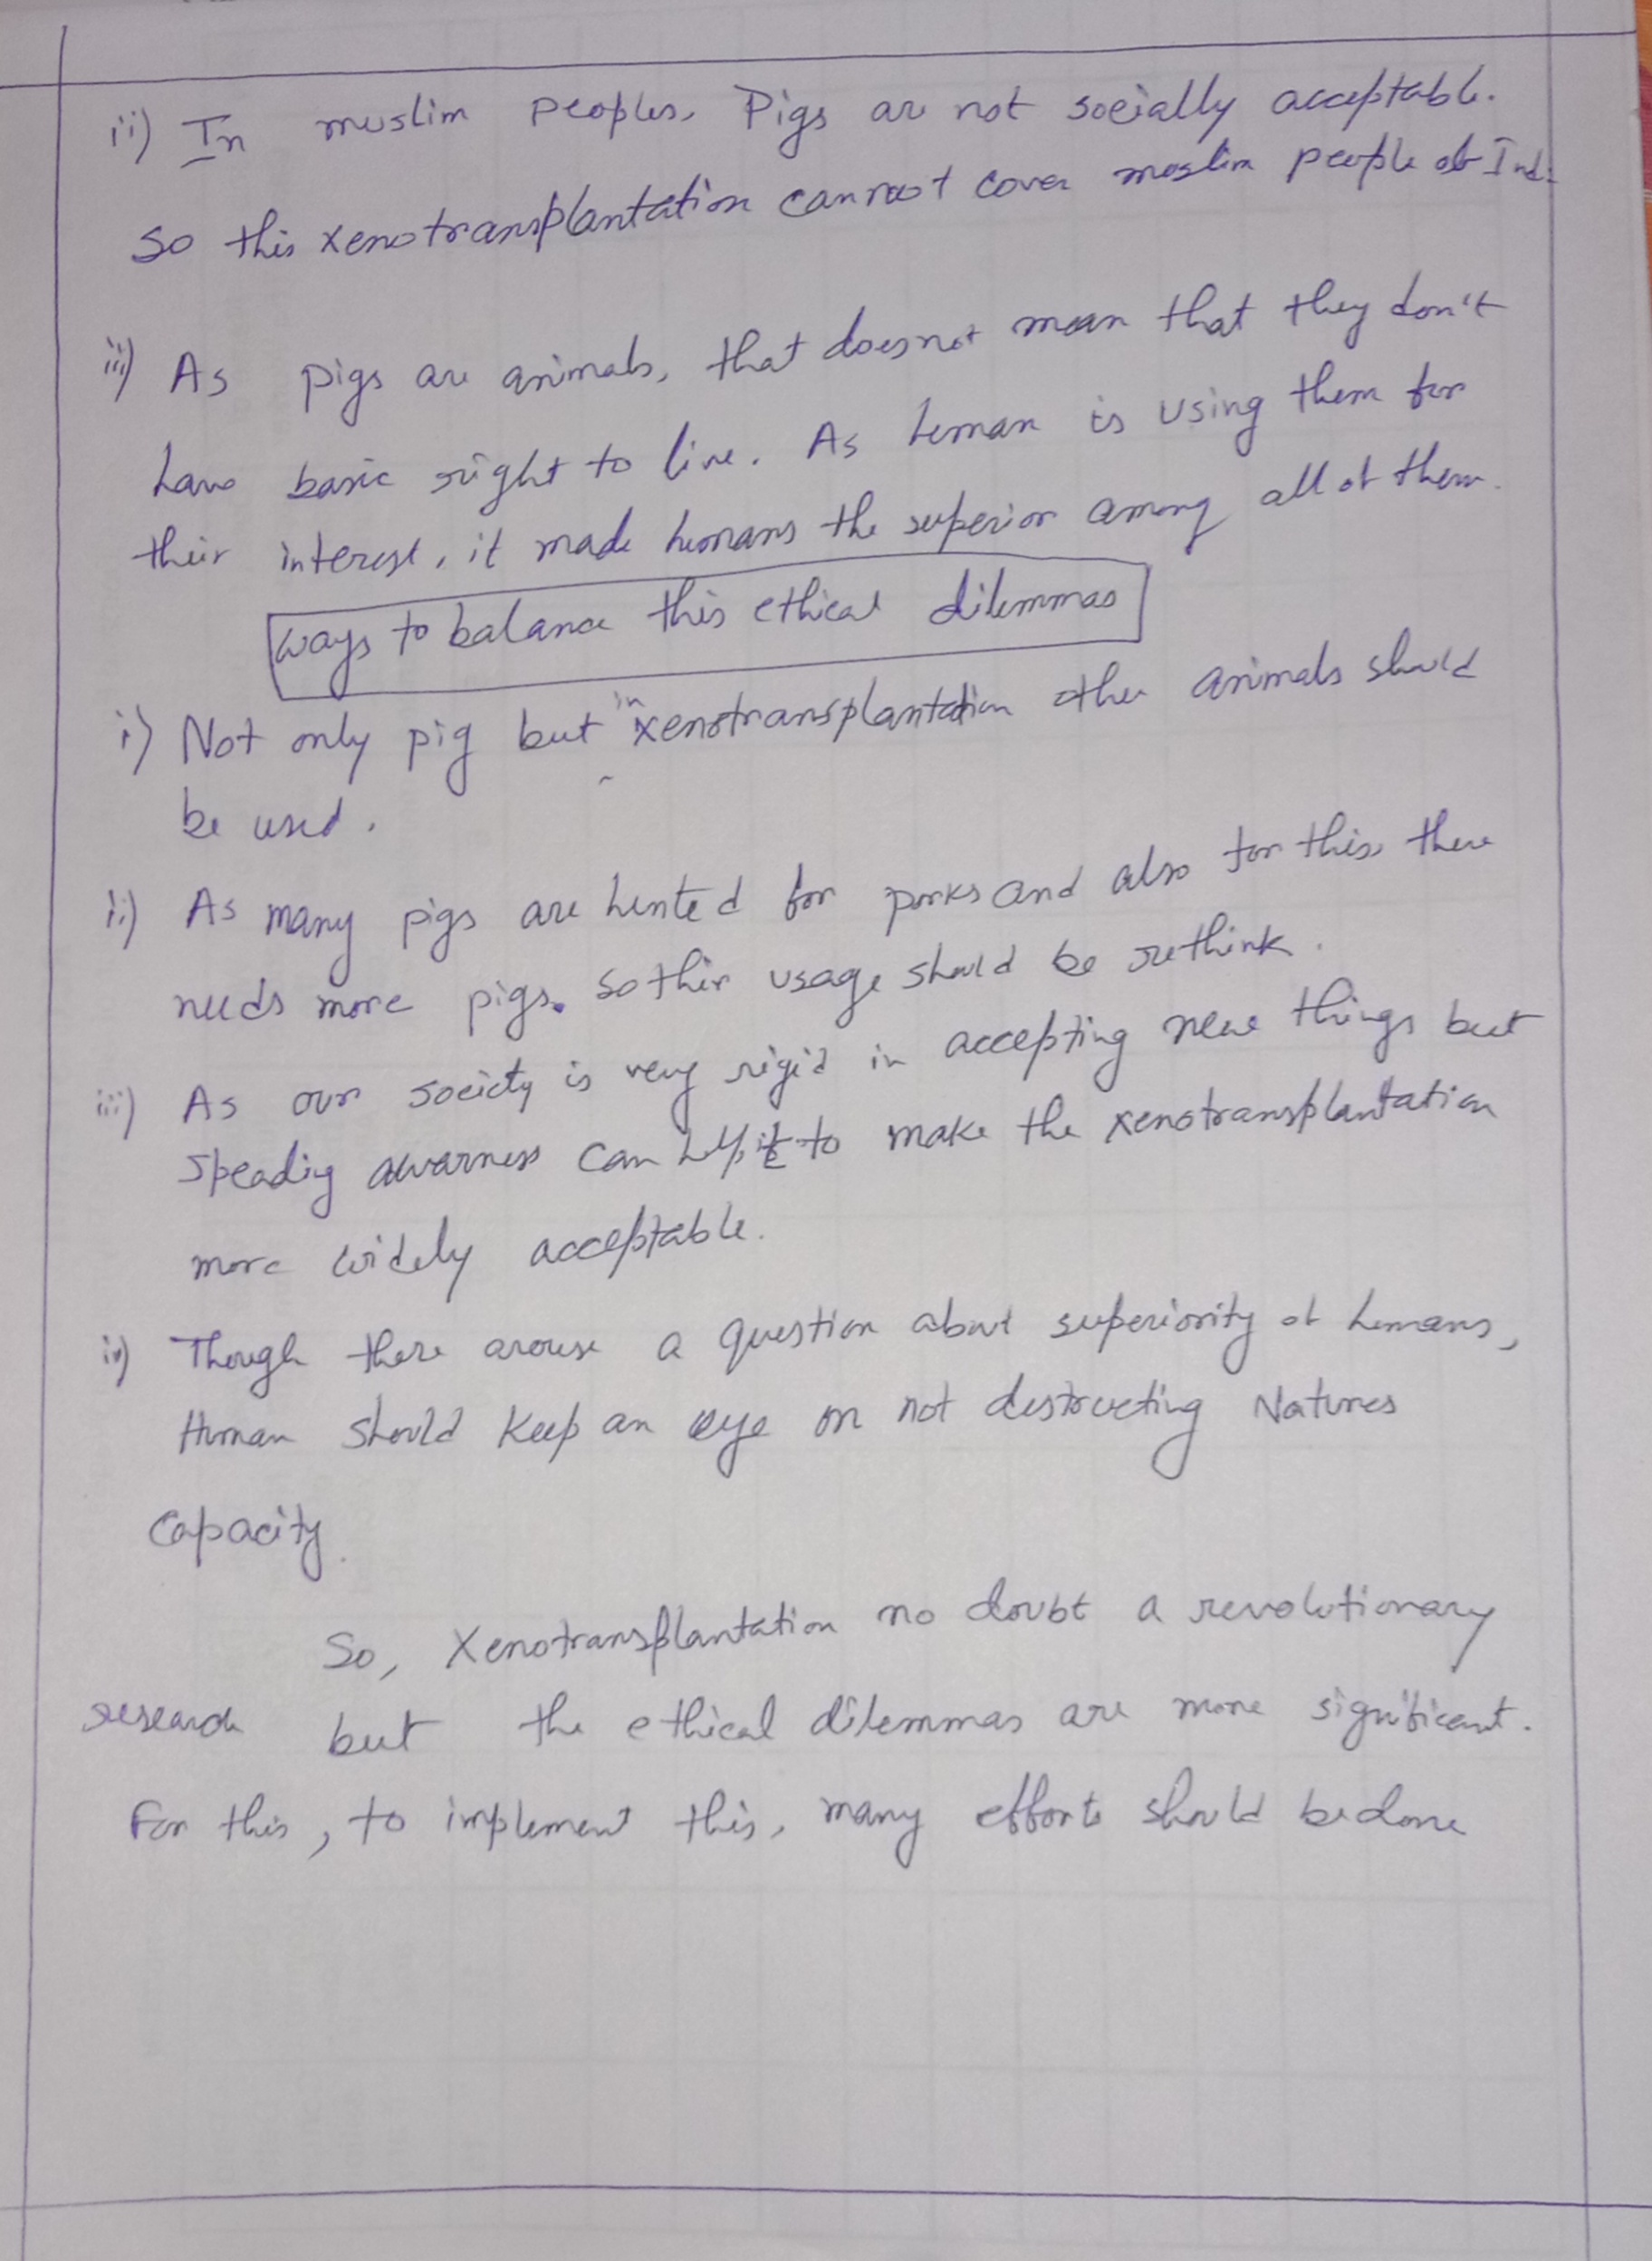 ii) In muslim peoples, Pigs are not socially acceptable.
So this xenotransplantation cannot cover muslim people of Ind.
iii) As pigs are animals, that doesnot mean that they don't
have basic right to live. As human is using them for
their interest, it made humans the superior among all of them.
ways to balance this ethical dilemmas
i) Not only pig but in xenotransplantation other animals should
be used.
ii) As many pigs are hunted for porks and also for this, there
needs more pigs. So their usage should be rethink.
iii) As our society is very rigid in accepting new things but
Speadig awarness can help it to make the xenotransplantation
more widely acceptable.
iv) Though there arouse a question about superiority of humans,
Human should keep an eye on not destructing Natures
Capacity.
So, Xenotransplantation no doubt a revolutionary
research but the ethical dilemmas are more significant.
For this, to implement this, many efforts should be done